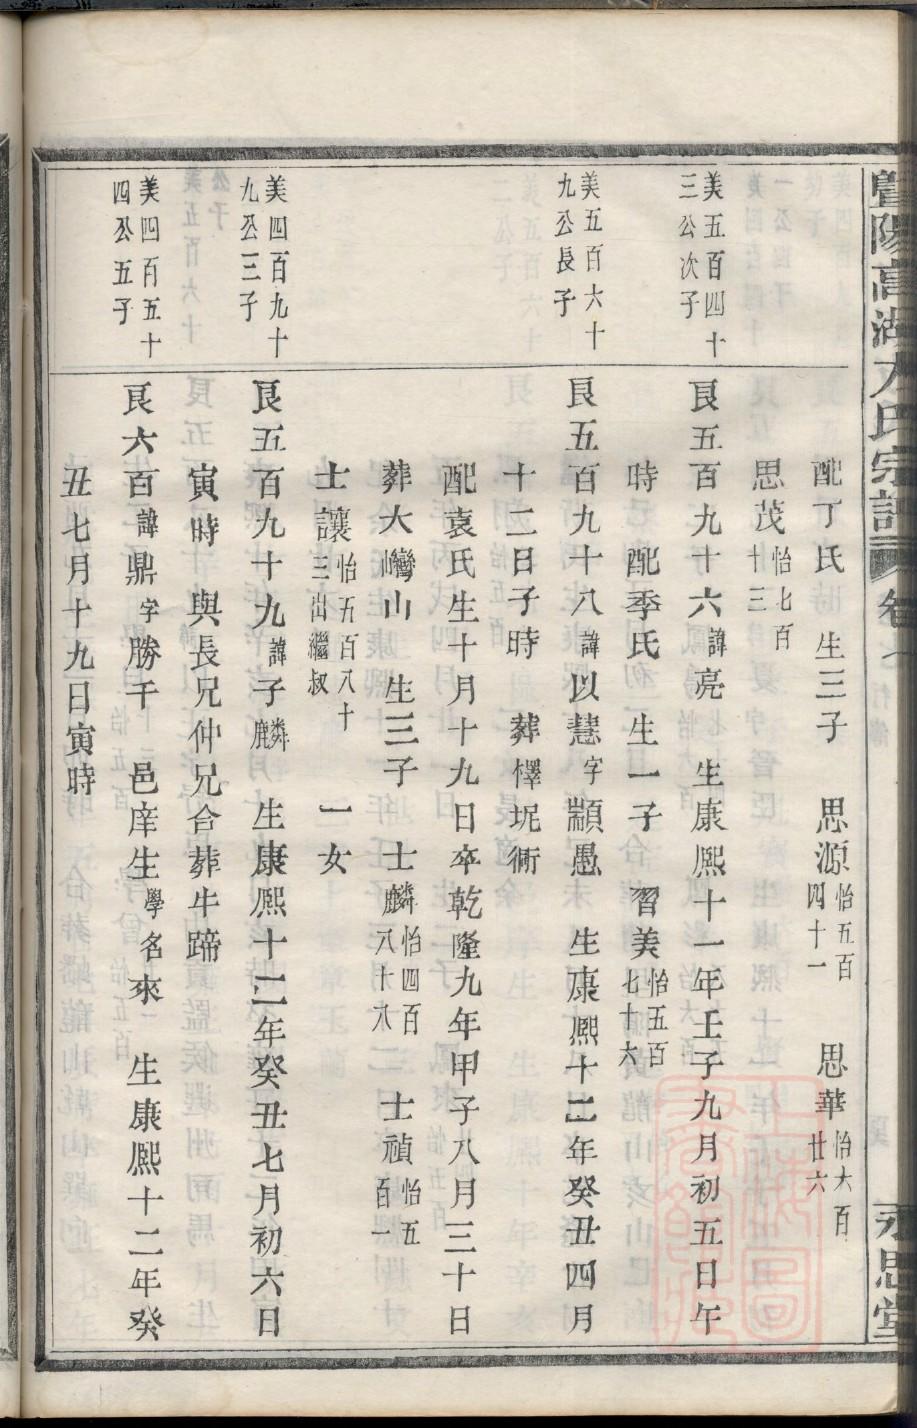 暨陽高湖方氏宗譜 卷七 行傳 永思堂
配丁氏 生三子 思源怡五百四十一 思華怡六百廿六
思茂怡七百十三
美五百四十三公次子
艮五百九十六諱亮 生康熙十一年壬子九月初五日午
時 配季氏 生一子 習美怡五百七十六
美五百六十九公長子
艮五百九十八諱以慧字顓愚 生康熙十二年癸丑四月
十二日子時 葬檡坭衕
配袁氏生十月十九日卒乾隆九年甲子八月三十日
葬大巒山 生三子 士麟怡四百八十八 士禎怡五百一
士讓怡五百八十三出繼叔 一女
美四百九十九公三子
艮五百九十九諱子麟 生康熙十二年癸丑七月初六日
寅時與長兄仲兄合葬牛蹄
美四百五十四公五子
艮六百諱鼎字勝千 邑庠生學名來 生康熙十二年癸
丑七月十九日寅時